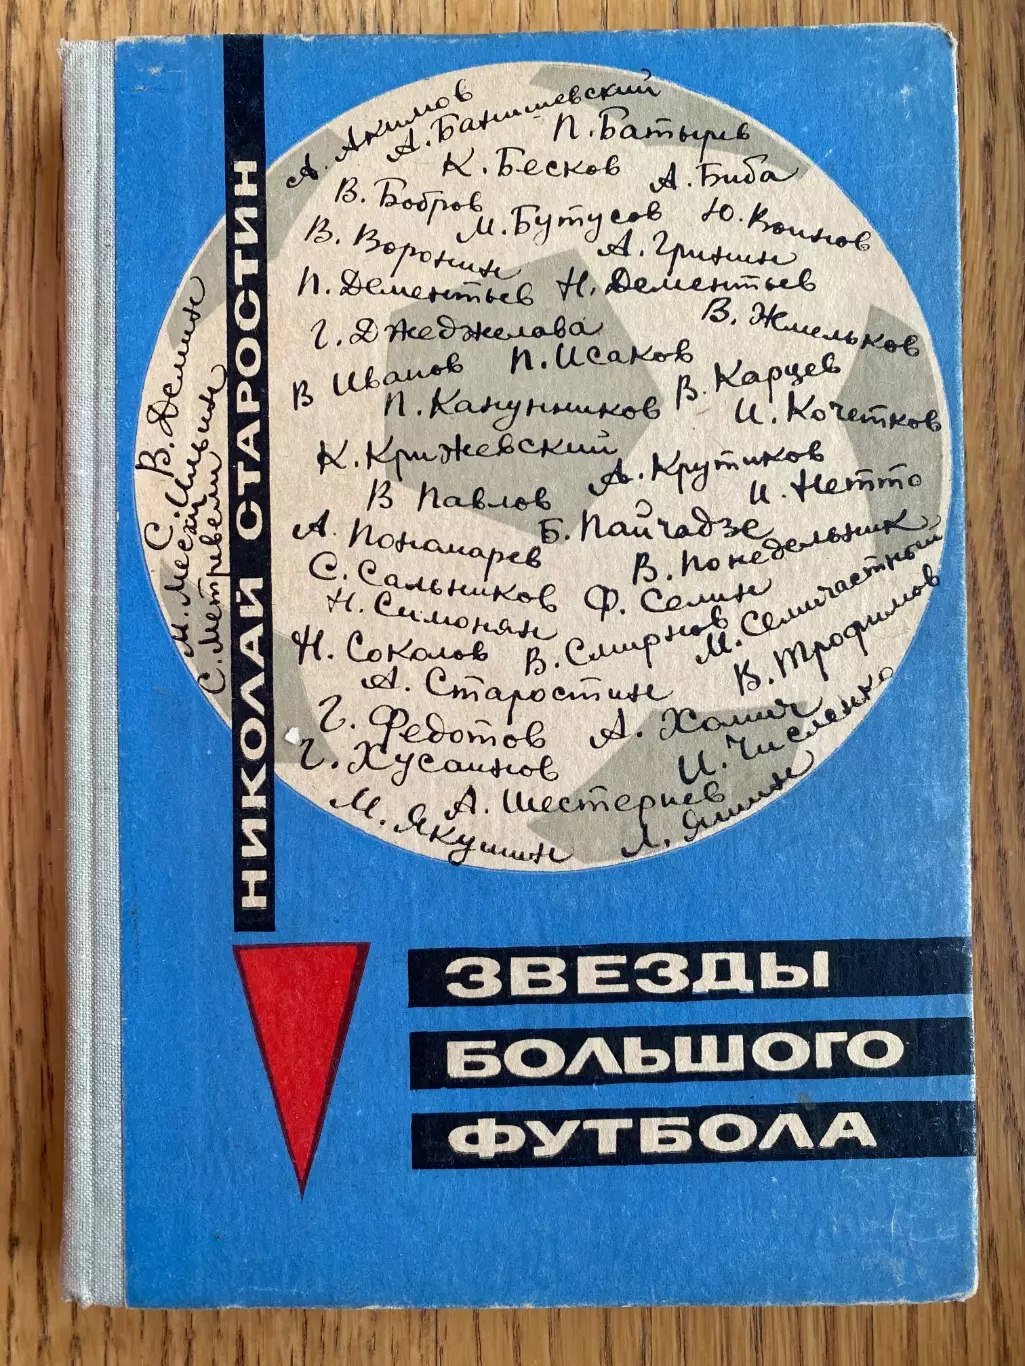 А. Акимов
А. Банишевский
П. Батырев
К. Бесков
А. Биба
В. Бобров
М. Бутусов
Ю. Воинов
В. Воронин
А. Гринин
П. Дементьев
Н. Дементьев
Г. Джеджелава
В. Жмельков
В Иванов
П. Исаков
В. Карцев
П. Канунников
И. Кочетков
К. Крижевский
А. Крутиков
В Павлов
И. Нетто
А. Пономарев
Б. Пайчадзе
В. Понедельник
С. Сальников
Ф. Селин
М. Семичастный
Н. Симонян
Н. Соколов
В. Смирнов
В. Трофимов
А. Старостин
Г. Федотов
А. Хомич
Г. Хусаинов
И. Численко
М. Якушин
А. Шестернев
Л. Яшин
В. Демин
С. Ильин
М. Месхи
С. Метревели
НИКОЛАЙ СТАРОСТИН
ЗВЕЗДЫ
БОЛЬШОГО
ФУТБОЛА